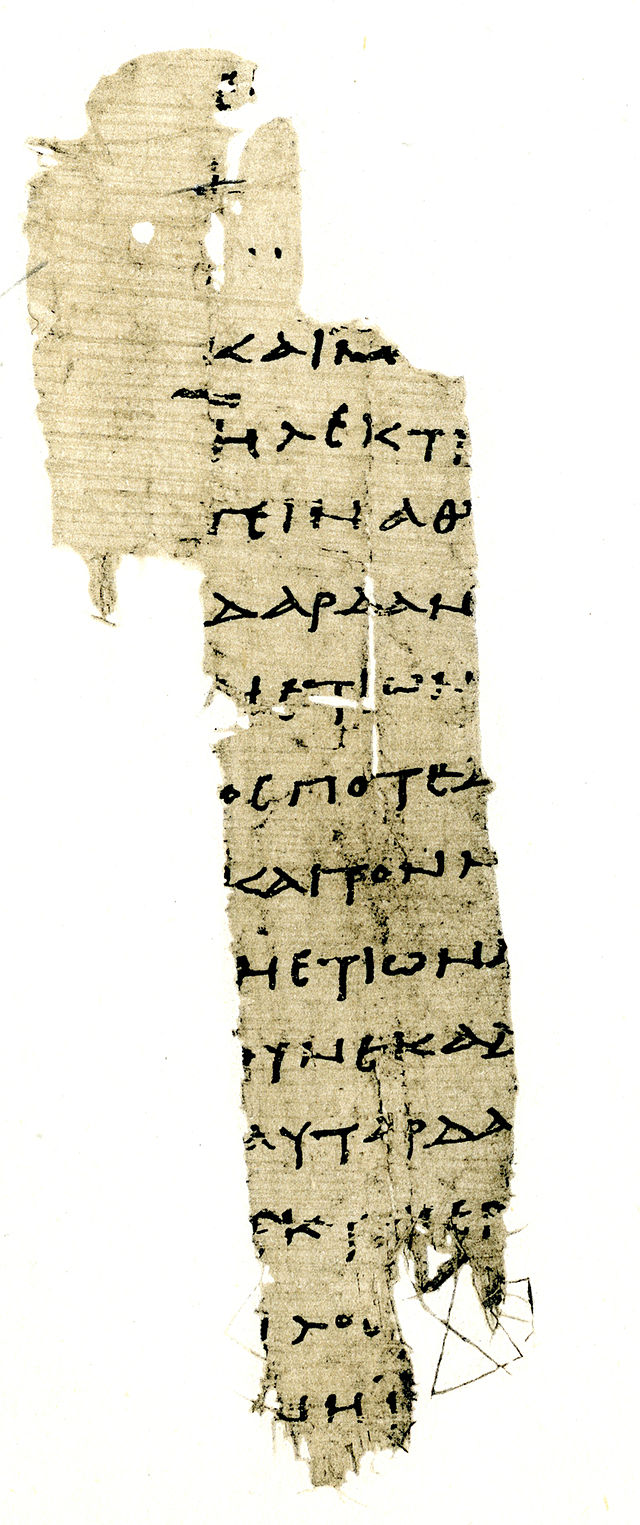 ΚΑΙΜ
ΗΛΕΚΤΡ
ΓΕΙΝΑΘ
ΔΑΡΔΑΝ
ΗΕΤΙΩΝ
ΟϹΠΟΤΕΔ
ΚΑΙΤΟΝΜ
ΗΕΤΙΩΝΑ
ΟΥΝΕΚΑΔ
ΑΥΤΑΡΔΑ
ΙΛΟϹ
ΝΗΙ